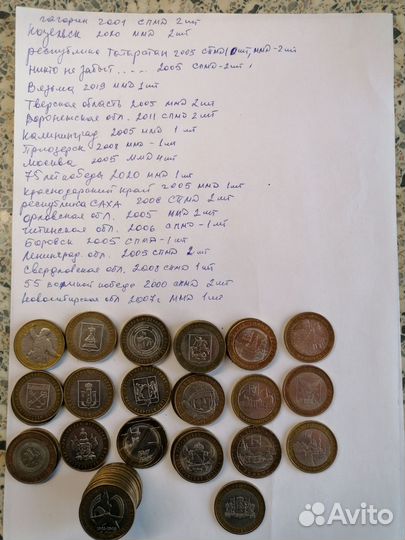 гагарин 2001 СПМД 2 шт
Козельск 2020 ММД 2 шт
республика Татарстан 2005 СПМД 10 шт, ММД-2 шт
никто не забыт..... 2005 СПМД-2 шт
Вязьма 2019 ММД 1 шт
Тверская область 2005 ММД 2 шт
Воронежская обл. 2011 СПМД 2 шт
Калининград 2005 ММД 1 шт
Приозерск 2008 ММД - 1 шт
Москва 2005 ММД 4 шт
75 лет победы 2020 ММД 1 шт
Краснодарский край 2005 ММД 1 шт
республика САХА 2006 СПМД 2 шт
Орловская обл. 2005 ММД 2 шт
Читинская обл. 2006 СПМД - 1 шт
Боровск 2005 СПМД - 1 шт
Ленинград. обл. 2005 СПМД 2 шт
Свердловская обл. 2008 СПМД 1 шт
55 великой победе 2000 СПМД 2 шт
Новосибирская обл 2007г ММД 1 шт
Avito